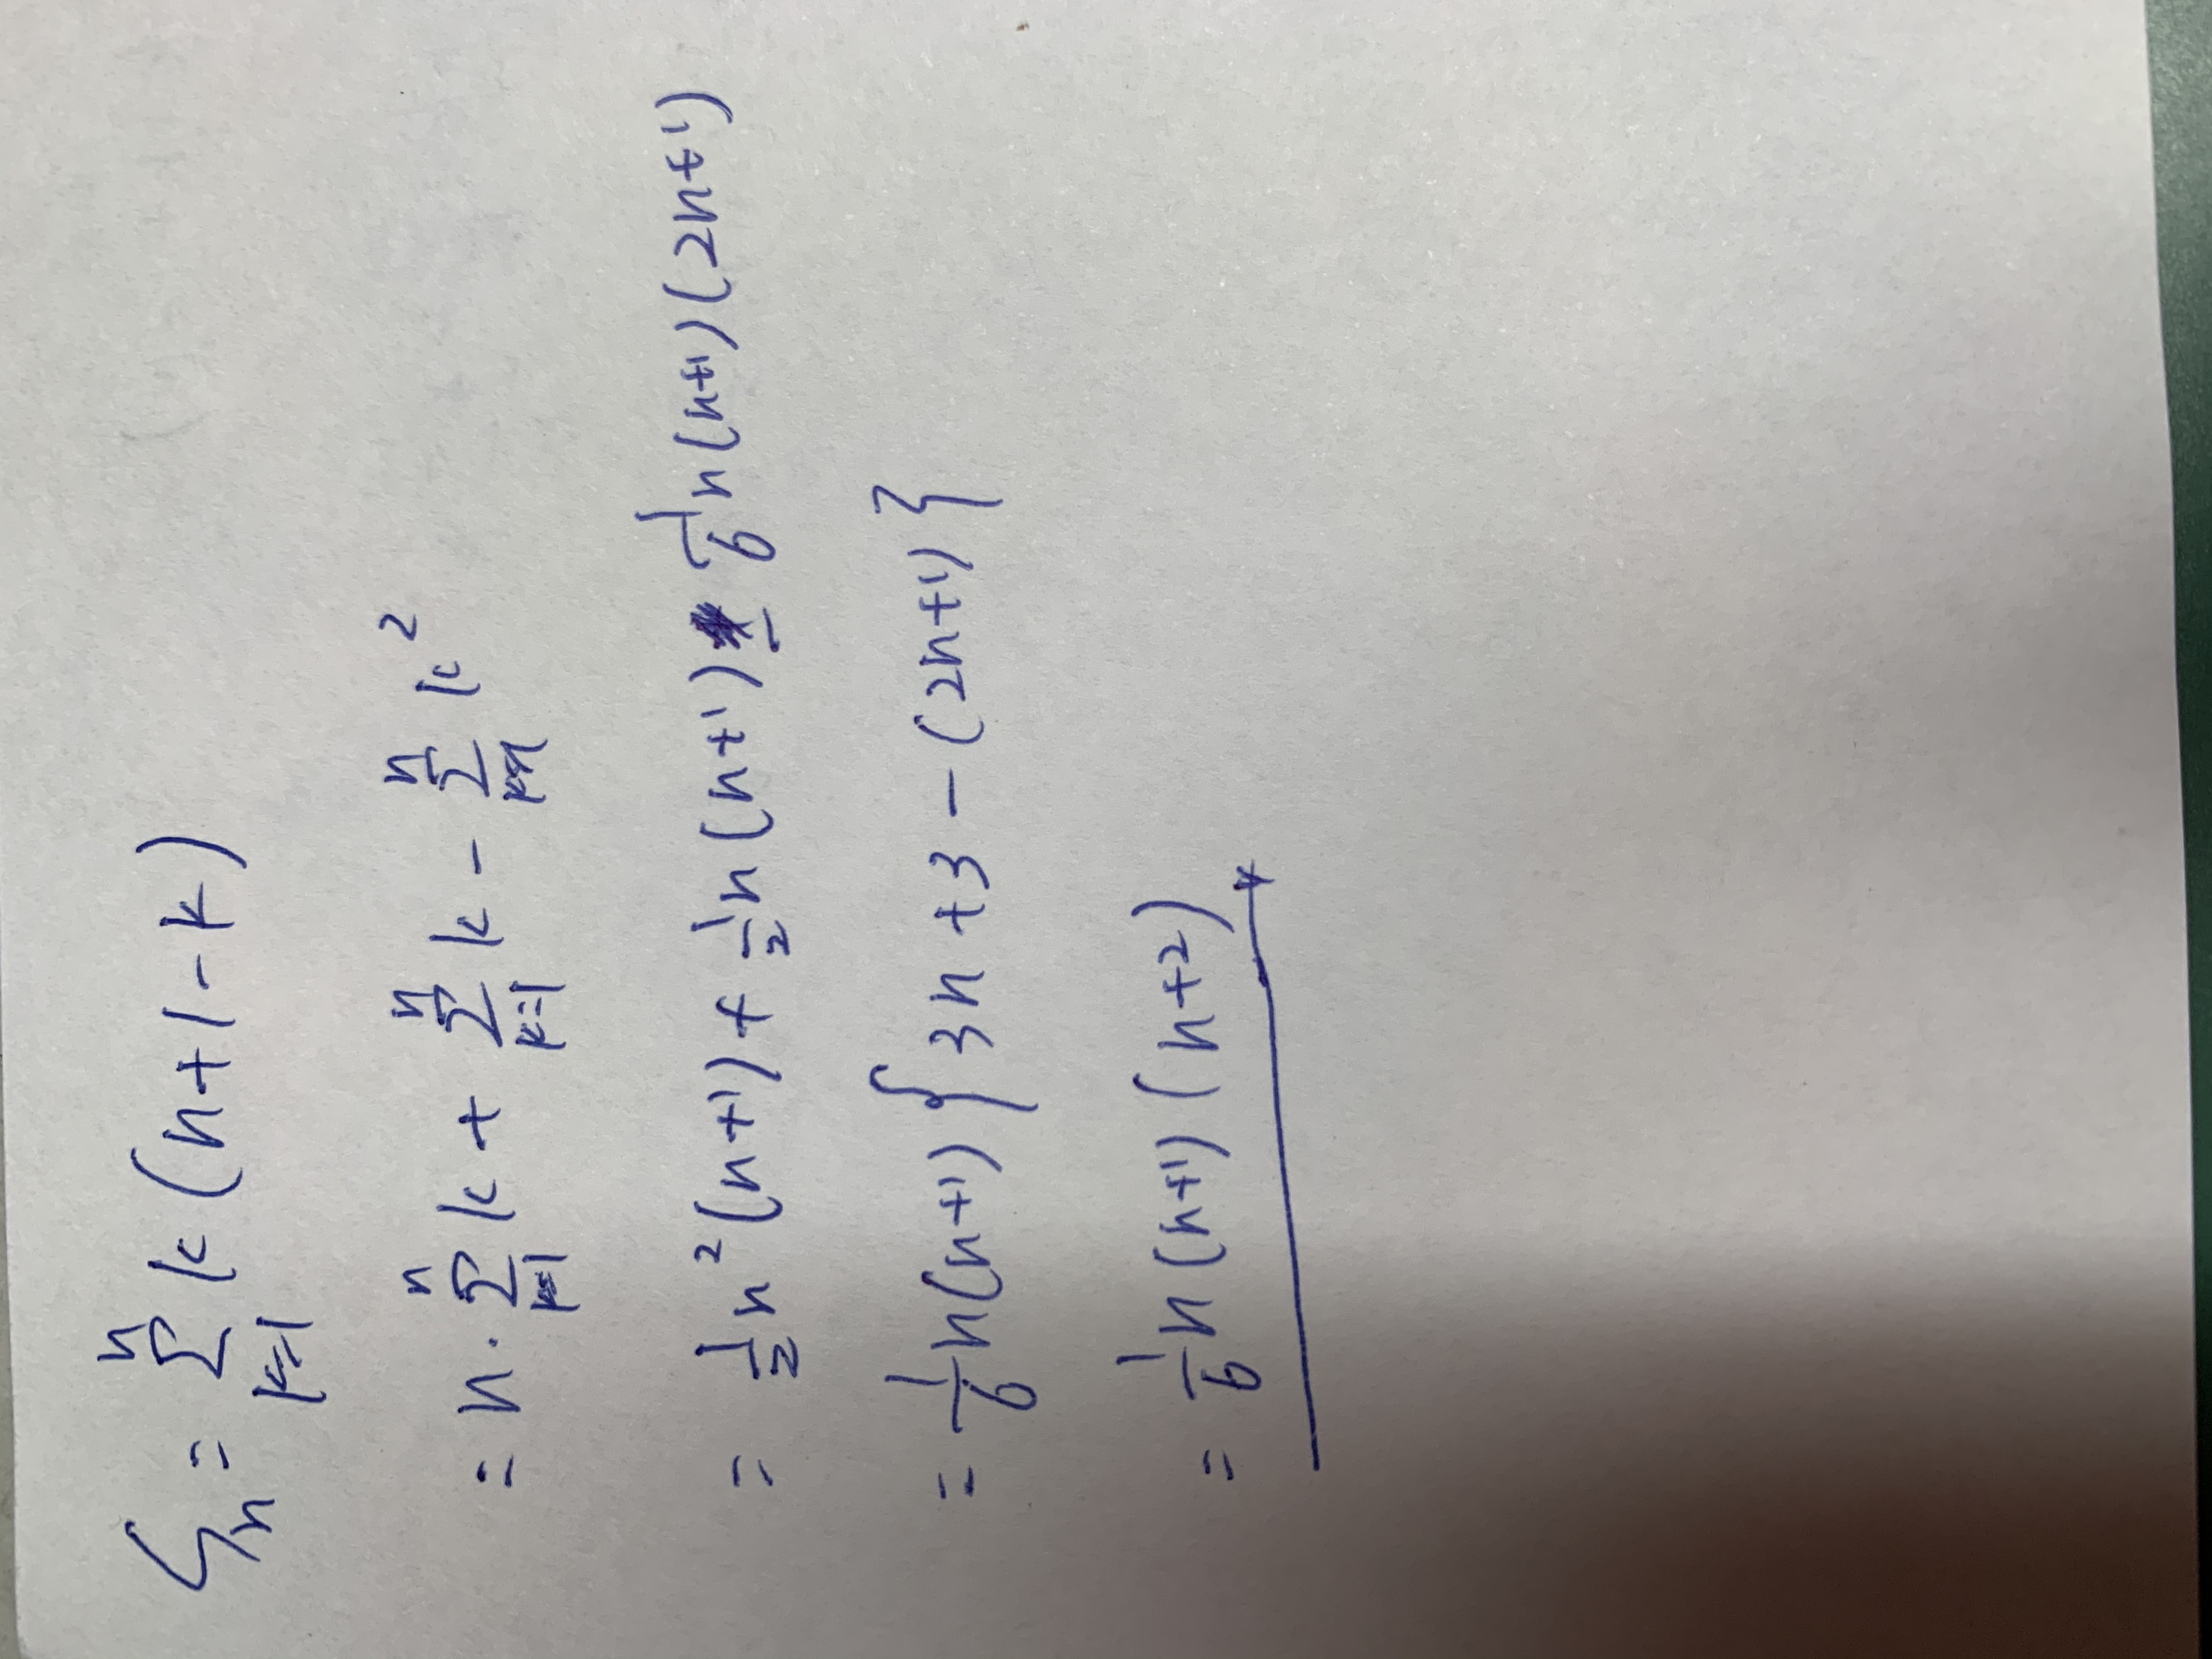 Sn = Σ_{k=1}^{n} k(n+1-k)
= n・Σ_{k=1}^{n} k + Σ_{k=1}^{n} k - Σ_{k=1}^{n} k²
= ½n²(n+1) + ½n(n+1) - ⅙n(n+1)(2n+1)
= ⅙n(n+1){3n+3-(2n+1)}
= ⅙n(n+1)(n+2)